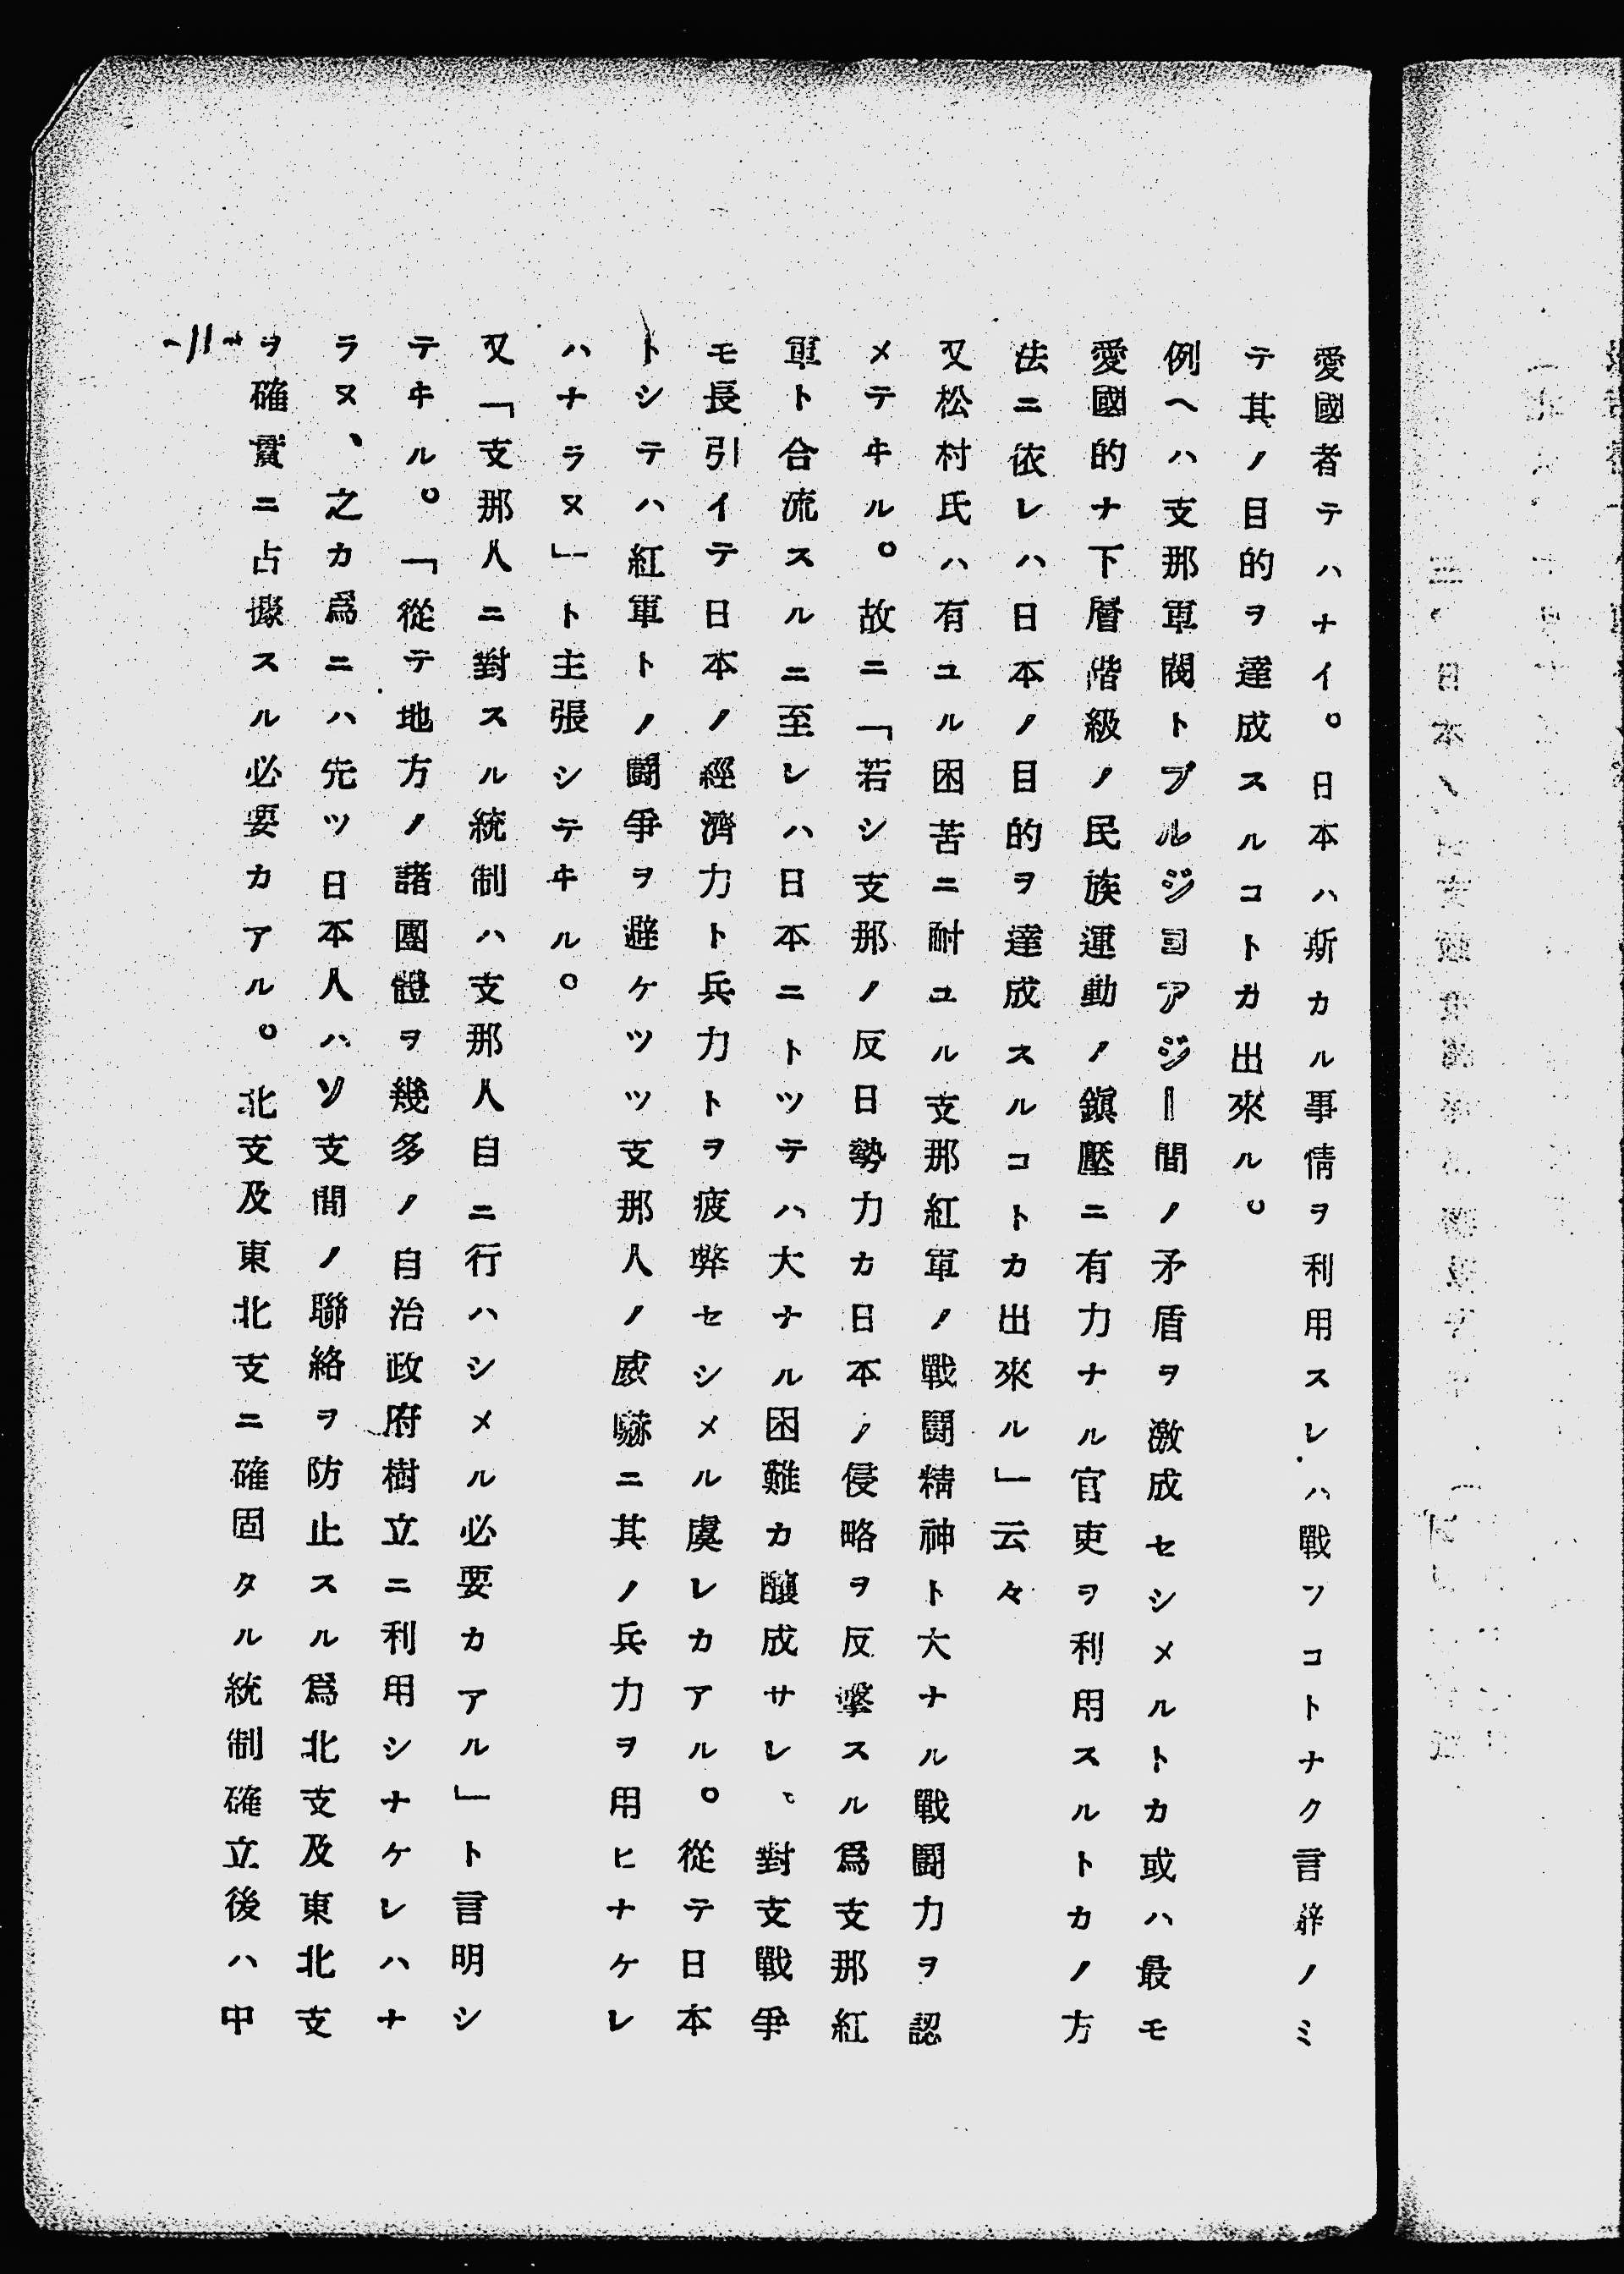 愛國者テハナイ。日本ハ斯カル事情ヲ利用スレハ戰フコトナク言辭ノミ
テ其ノ目的ヲ達成スルコトカ出來ル。
例ヘハ支那軍閥トブルジヨアジー間ノ矛盾ヲ激成セシメルトカ或ハ最モ
愛國的ナ下層階級ノ民族運動ノ鎭壓ニ有力ナル官吏ヲ利用スルトカノ方
法ニ依レハ日本ノ目的ヲ達成スルコトカ出來ル」云々
又松村氏ハ有ユル困苦ニ耐ユル支那紅軍ノ戰鬪精神ト大ナル戰鬪力ヲ認
メテヰル。故ニ「若シ支那ノ反日勢力カ日本ノ侵略ヲ反擊スル爲支那紅
軍ト合流スルニ至レハ日本ニトツテハ大ナル困難カ釀成サレ、對支戰爭
モ長引イテ日本ノ經濟力ト兵力トヲ疲弊セシメル虞レカアル。從テ日本
トシテハ紅軍トノ鬪爭ヲ避ケツツ支那人ノ威嚇ニ其ノ兵力ヲ用ヒナケレ
ハナラヌ」ト主張シテヰル。
又「支那人ニ對スル統制ハ支那人自ニ行ハシメル必要カアル」ト言明シ
テヰル。「從テ地方ノ諸團體ヲ幾多ノ自治政府樹立ニ利用シナケレハナ
ラヌ、之カ爲ニハ先ツ日本人ハソ支間ノ聯絡ヲ防止スル爲北支及東北支
ヲ確實ニ占據スル必要カアル。北支及東北支ニ確固タル統制確立後ハ中
-11-